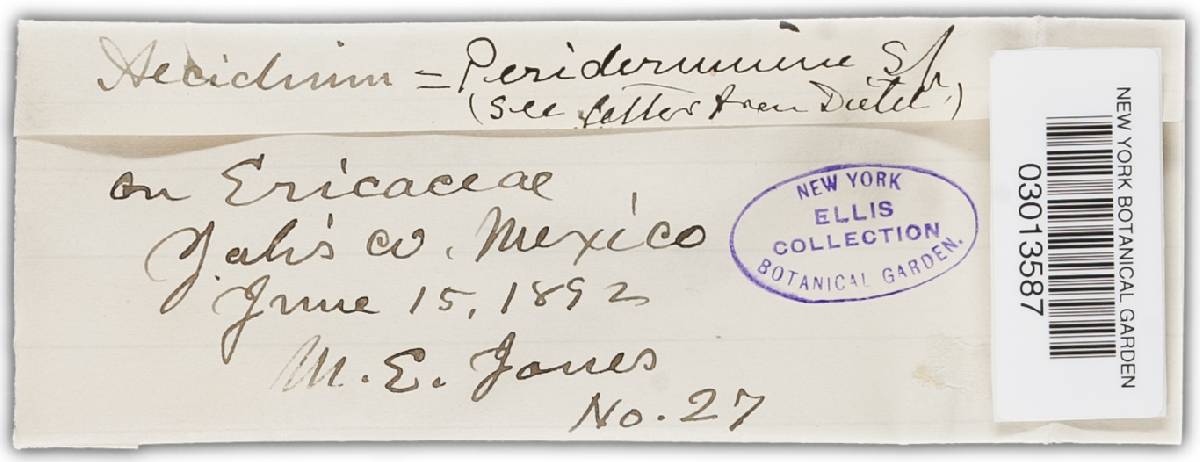 Aecidium = Peridermium Sp.
(See letter from Dietel.)
on Ericaceae
Jalisco, Mexico
June 15, 1892
M. E. Jones
No. 27
NEW YORK
ELLIS
COLLECTION
BOTANICAL GARDEN.
NEW YORK BOTANICAL GARDEN
03013587